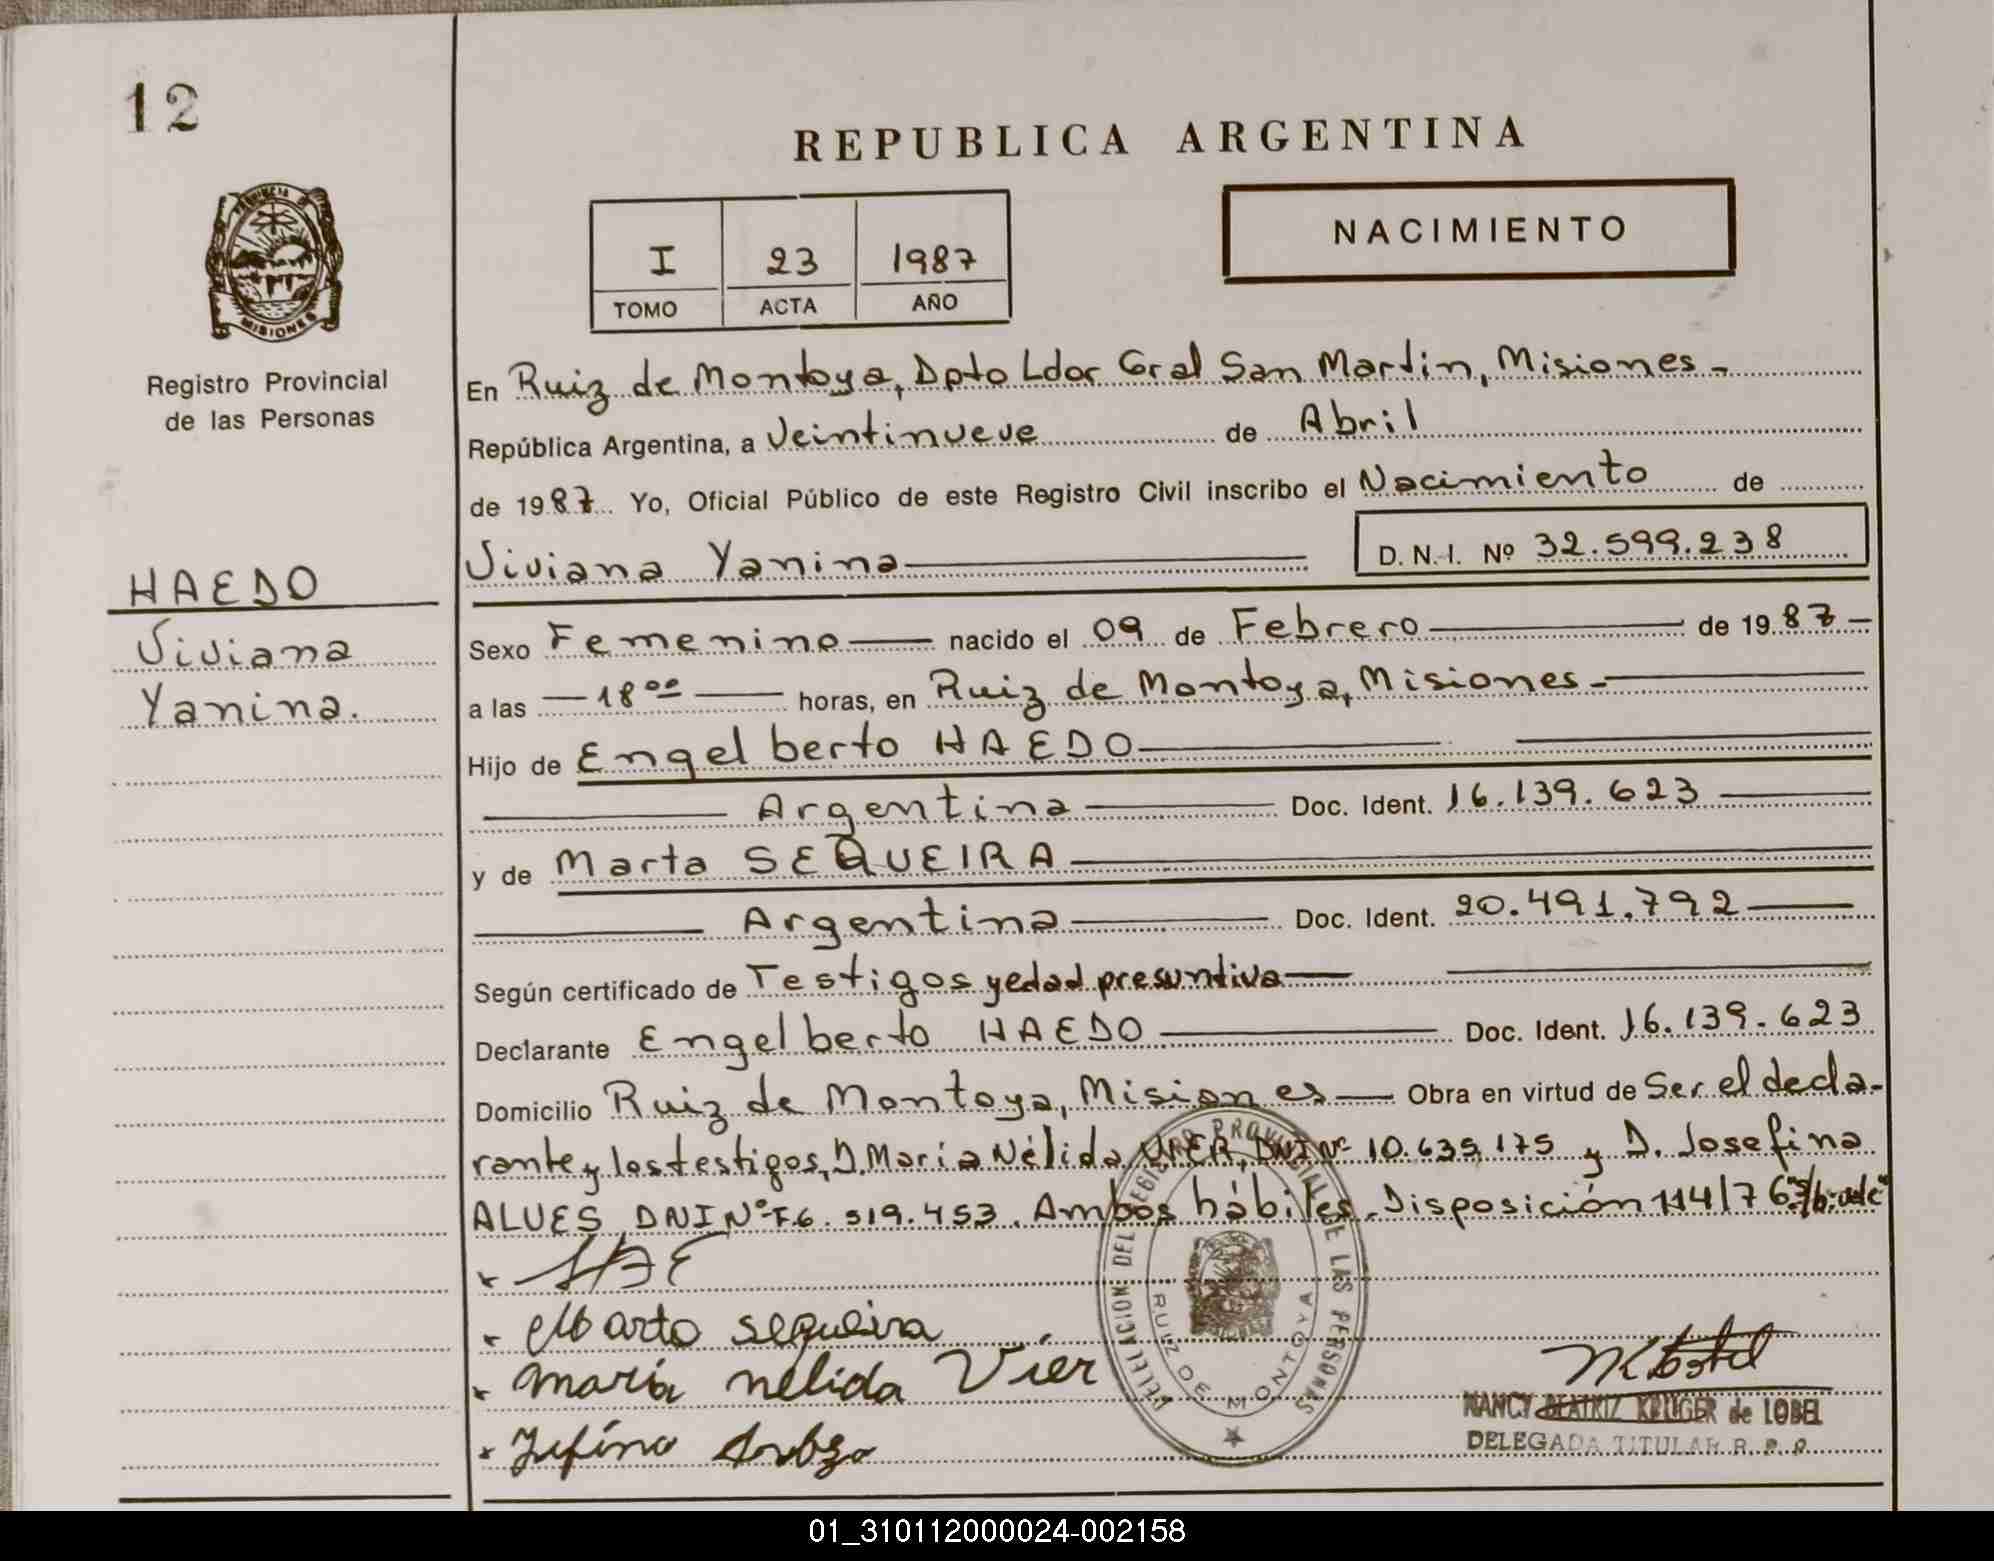 12
REPUBLICA ARGENTINA
I 23 1987
TOMO ACTA AÑO
NACIMIENTO
PROVINCIA D
MISIONES
Registro Provincial
de las Personas
En Ruiz de Montoya, Dpto Ldor Gral San Martin, Misiones-
República Argentina, a Veintinueve de Abril
de 1987 Yo, Oficial Público de este Registro Civil inscribo el Nacimiento de
Viviana Yanina D.N.I. Nº 32.599.238
HAEDO
Viviana
Yanina.
Sexo Femenino nacido el 09 de Febrero de 1987-
a las -18ºº horas, en Ruiz de Montoya, Misiones-
Hijo de Engelberto HAEDO
Argentina Doc. Ident. 16.139.623
y de Marta SEQUEIRA
Argentina Doc. Ident. 20.491.792
Según certificado de Testigos y edad presuntiva
Declarante Engelberto HAEDO Doc. Ident. 16.139.623
Domicilio Ruiz de Montoya, Misiones- Obra en virtud de Ser el decla-
rante y los testigos, D. María Nélida VIER, DNI Nº 10.635.175 y D. Josefina
ALVES DNI Nº F6.519.453. Ambos hábiles. Disposición 114/76
HAE
Marta sequeira
maria nelida Vier
DELEGACION DEL REGISTRO PROVINCIAL DE LAS PERSONAS
RUIZ DE MONTOYA
NANCY BEATRIZ KRUGER de LOBEL
DELEGADA TITULAR R. P. P.
01_310112000024-002158